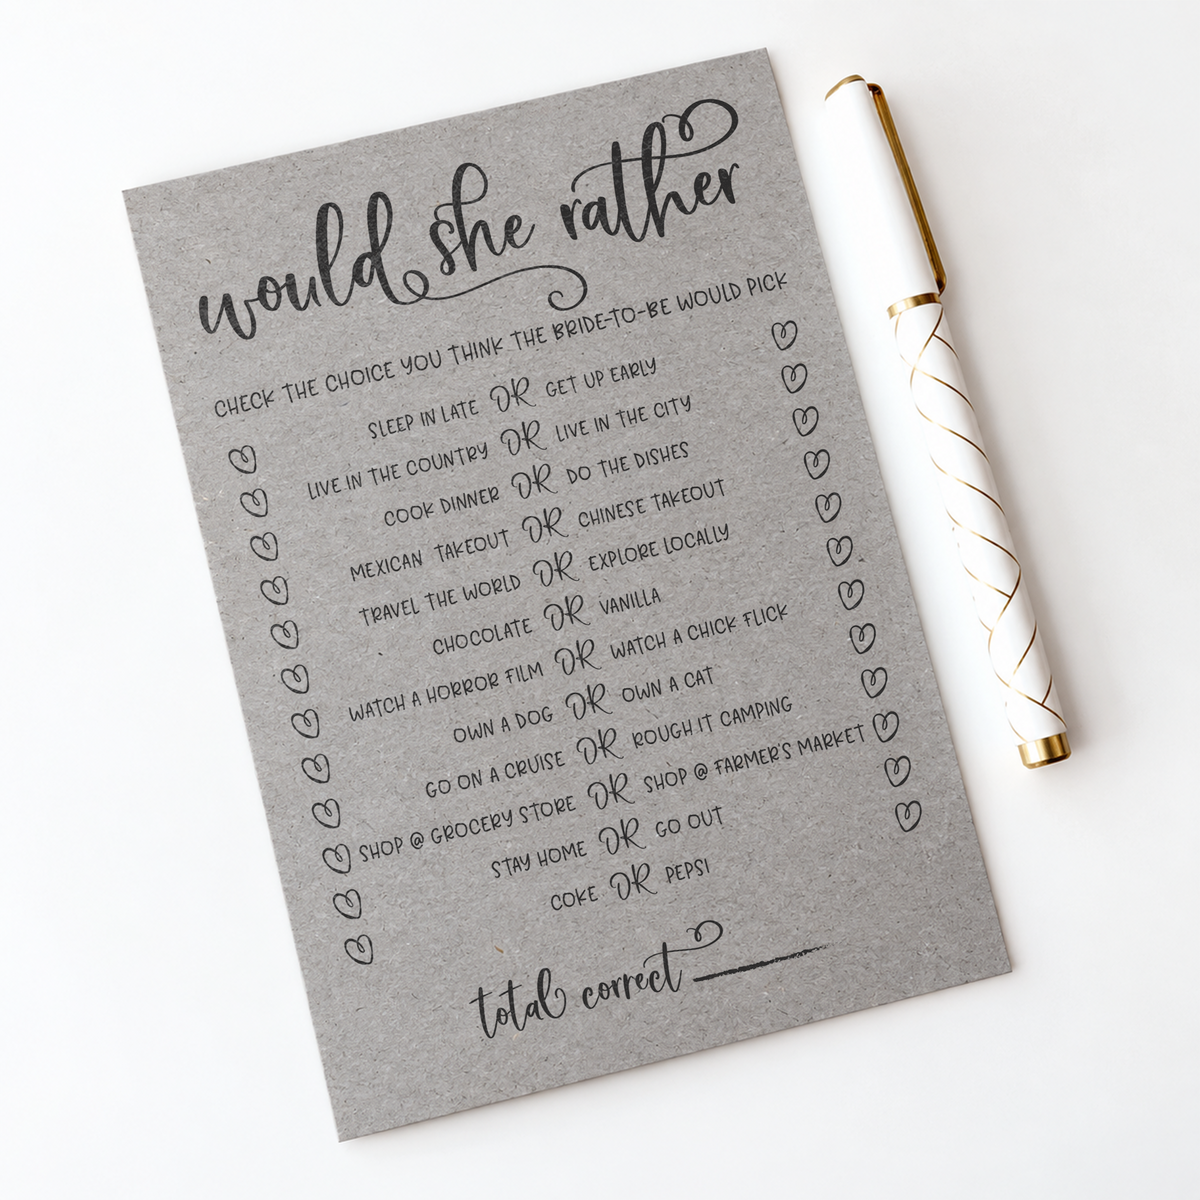 would she rather
CHECK THE CHOICE YOU THINK THE BRIDE-TO-BE WOULD PICK
SLEEP IN LATE OR GET UP EARLY
LIVE IN THE COUNTRY OR LIVE IN THE CITY
COOK DINNER OR DO THE DISHES
MEXICAN TAKEOUT OR CHINESE TAKEOUT
TRAVEL THE WORLD OR EXPLORE LOCALLY
CHOCOLATE OR VANILLA
WATCH A HORROR FILM OR WATCH A CHICK FLICK
OWN A DOG OR OWN A CAT
GO ON A CRUISE OR ROUGH IT CAMPING
SHOP @ GROCERY STORE OR SHOP @ FARMER'S MARKET
STAY HOME OR GO OUT
COKE OR PEPSI
total correct